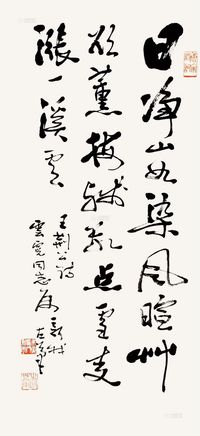 日净山如染风暄艸
欲薰梅残数点雪麦
涨一溪云
王荆公诗
雲霓同志属
左笔